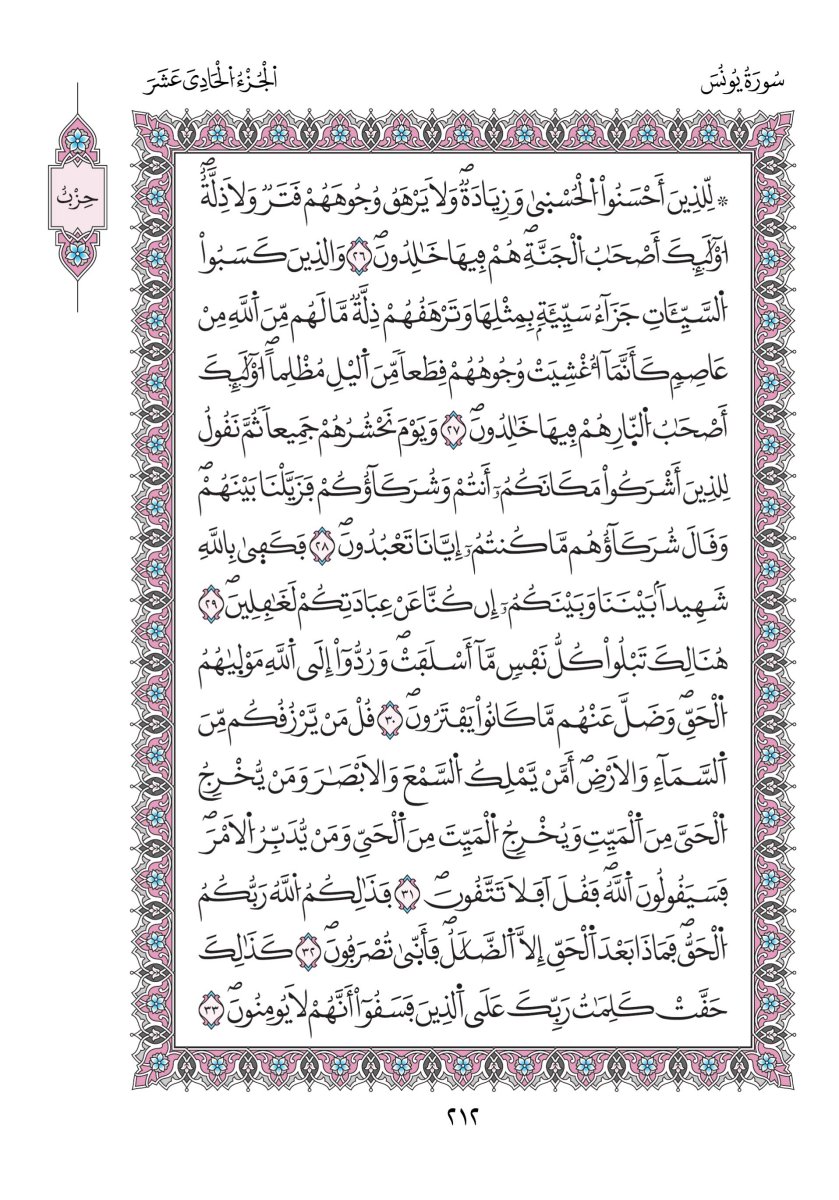 سُورَةُ يُونُسَ
اَلْجُزْءُ اَلْحَادِىَ عَشَرَ
حِزْبٌ
۞ لِّلذِينَ أَحْسَنُواْ اُ۬لْحُسْنۭيٰ وَزِيَادَةٞۖ وَلَا يَرْهَقُ وُجُوهَهُمْ قَتَرٞ وَلَا ذِلَّةٌۖ
ا۟وْلَٰٓئِكَ أَصْحَٰبُ اُ۬لْجَنَّةِۖ هُمْ فِيهَا خَٰلِدُونَۖ ٢٦ وَالذِينَ كَسَبُواْ
اُ۬لسَّيِّـَٔاتِ جَزَآءُ سَيِّئَةِۢ بِمِثْلِهَا وَتَرْهَقُهُمْ ذِلَّةٞ مَّا لَهُم مِّنَ اَ۬للَّهِ مِنْ
عَاصِمٖ كَأَنَّمَآ أُغْشِيَتْ وُجُوهُهُمْ قِطَعاٗ مِّنَ اَ۬ليْلِ مُظْلِماًۖ ا۟وْلَٰٓئِكَ
أَصْحَٰبُ اُ۬لنّ۪ارِ هُمْ فِيهَا خَٰلِدُونَۖ ٢٧ وَيَوْمَ نَحْشُرُهُمْ جَمِيعاٗ ثُمَّ نَقُولُ
لِلذِينَ أَشْرَكُواْ مَكَانَكُمُۥٓ أَنتُمْ وَشُرَكَآؤُكُمْ فَزَيَّلْنَا بَيْنَهُمْۖ
وَقَالَ شُرَكَآؤُهُم مَّا كُنتُمُۥٓ إِيَّانَا تَعْبُدُونَۖ ٢٨ فَكَف۪يٰ بِاللَّهِ
شَهِيداَۢ بَيْنَنَا وَبَيْنَكُمُۥٓ إِن كُنَّا عَنْ عِبَادَتِكُمْ لَغَٰفِلِينَۖ ٢٩
هُنَالِكَ تَبْلُواْ كُلُّ نَفْسٖ مَّآ أَسْلَفَتْۖ وَرُدُّوٓاْ إِلَي اَ۬للَّهِ مَوْل۪يٰهُمُ
اُ۬لْحَقِّۖ وَضَلَّ عَنْهُم مَّا كَانُواْ يَفْتَرُونَۖ ٣٠ قُلْ مَنْ يَّرْزُقُكُم مِّنَ
اَ۬لسَّمَآءِ وَالَارْضِۖ أَمَّنْ يَّمْلِكُ اُ۬لسَّمْعَ وَالَابْصَٰرَ وَمَنْ يُّخْرِجُ
اُ۬لْحَيَّ مِنَ اَ۬لْمَيِّتِ وَيُخْرِجُ اُ۬لْمَيِّتَ مِنَ اَ۬لْحَيِّ وَمَنْ يُّدَبِّرُ اُ۬لَامْرَۖ
فَسَيَقُولُونَ اَ۬للَّهُۖ فَقُلَ اَفَلَا تَتَّقُونَۖ ٣١ فَذَٰلِكُمُ اُ۬للَّهُ رَبُّكُمُ
اُ۬لْحَقُّۖ فَمَاذَا بَعْدَ اَ۬لْحَقِّ إِلَّا اَ۬لضَّلَٰلُۖ فَأَنّ۪يٰ تُصْرَفُونَۖ ٣٢ كَذَٰلِكَ
حَقَّتْ كَلِمَٰتُ رَبِّكَ عَلَي اَ۬لذِينَ فَسَقُوٓاْ أَنَّهُمْ لَا يُومِنُونَۖ ٣٣
٢١٢